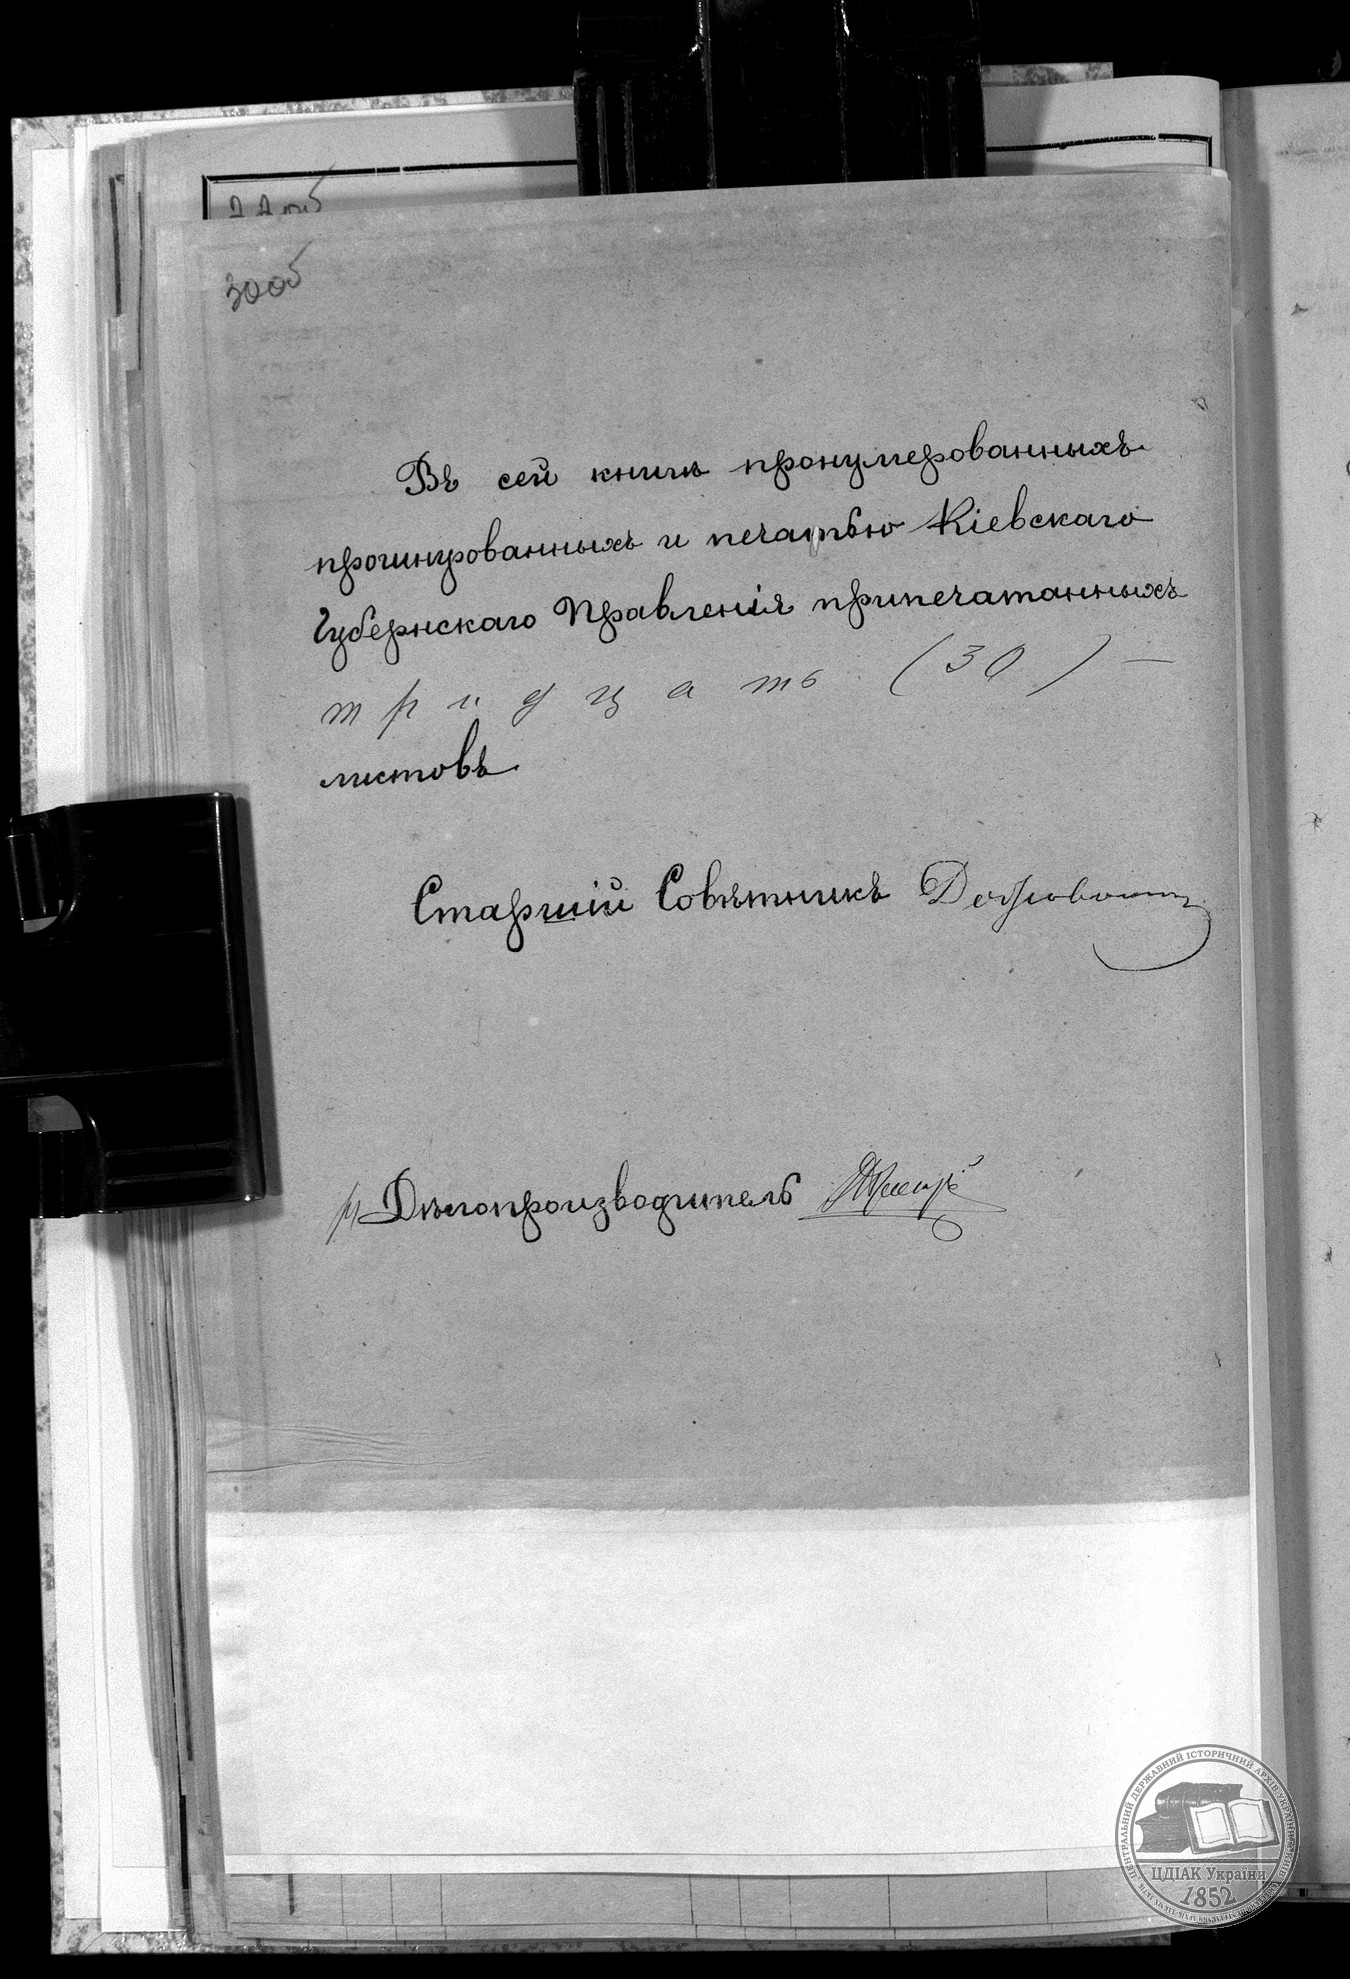 30об
Въ сей книгѣ пронумерованныхъ
прошнурованныхъ и печатью Кіевскаго
Губернскаго Правленія припечатанныхъ
тридцать (30) —
листовъ
Старшій Совѣтникъ
Дѣлопроизводитель
ЦЕНТРАЛЬНИЙ ДЕРЖАВНИЙ ІСТОРИЧНИЙ АРХІВ УКРАЇНИ
ЦДІАК України
1852